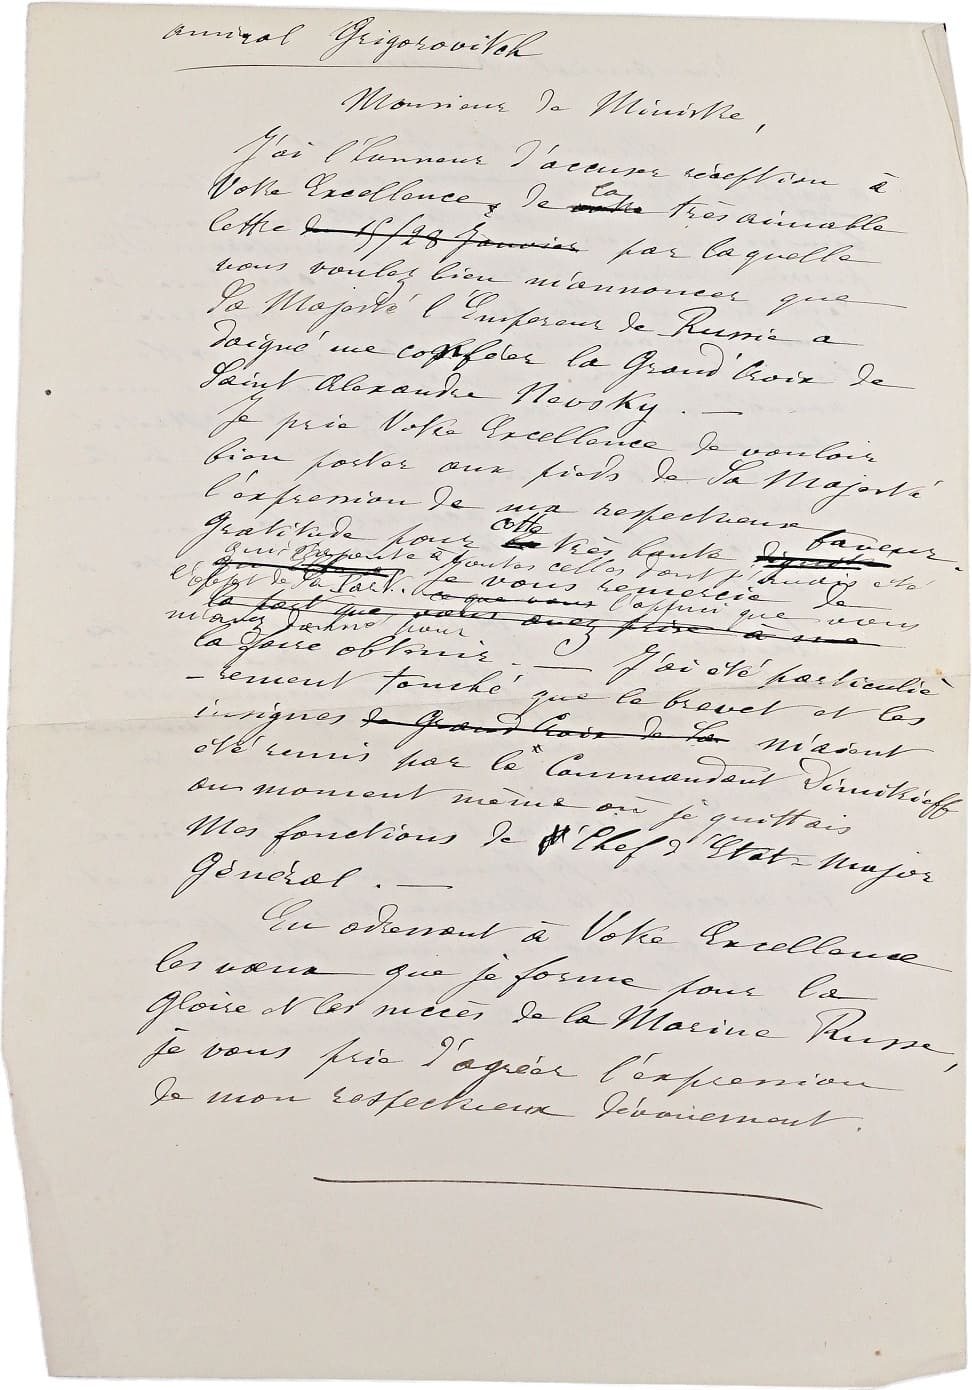 amiral Grigorovitch
Monsieur le Ministre,
J'ai l'honneur d'accuser réception à
Votre Excellence, de la très aimable
lettre du 15/28 Janvier par laquelle
vous voulez bien m'annoncer que
Sa Majesté l'Empereur de Russie a
daigné me conférer la Grand'Croix de
Saint Alexandre Nevsky. —
Je prie Votre Excellence de vouloir
bien porter aux pieds de Sa Majesté
l'expression de ma respectueuse
gratitude pour cette très haute faveur
qui s'ajoute à toutes celles dont j'avais été
l'objet de Sa Part. Je vous remercie de
ce que vous l'appui que vous
la part que vous avez prise à me
m'avez donné pour
la faire obtenir. — J'ai été particuliè
-rement touché que le brevet et les
insignes de Grand Croix de la m'aient
été remis par le Commandant Dimitrieff
au moment même où je quittais
Mes fonctions de Chef d'Etat-Major
Général. —
En adressant à Votre Excellence
les vœux que je forme pour la
Gloire et les succès de la Marine Russe,
je vous prie d'agréer l'expression
de mon respectueux dévouement.